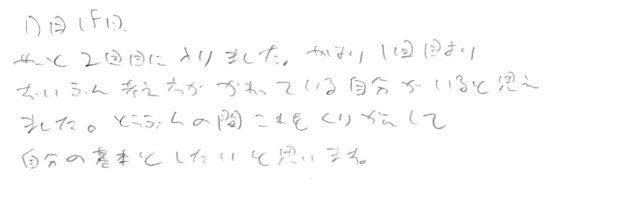 17日(日).
やっと2回目に入りました。やはり1回目より
だいぶん考え方がかわっている自分がいると思え
ました。とうぶんの間これをくりかえして
自分の基本としたいと思います。